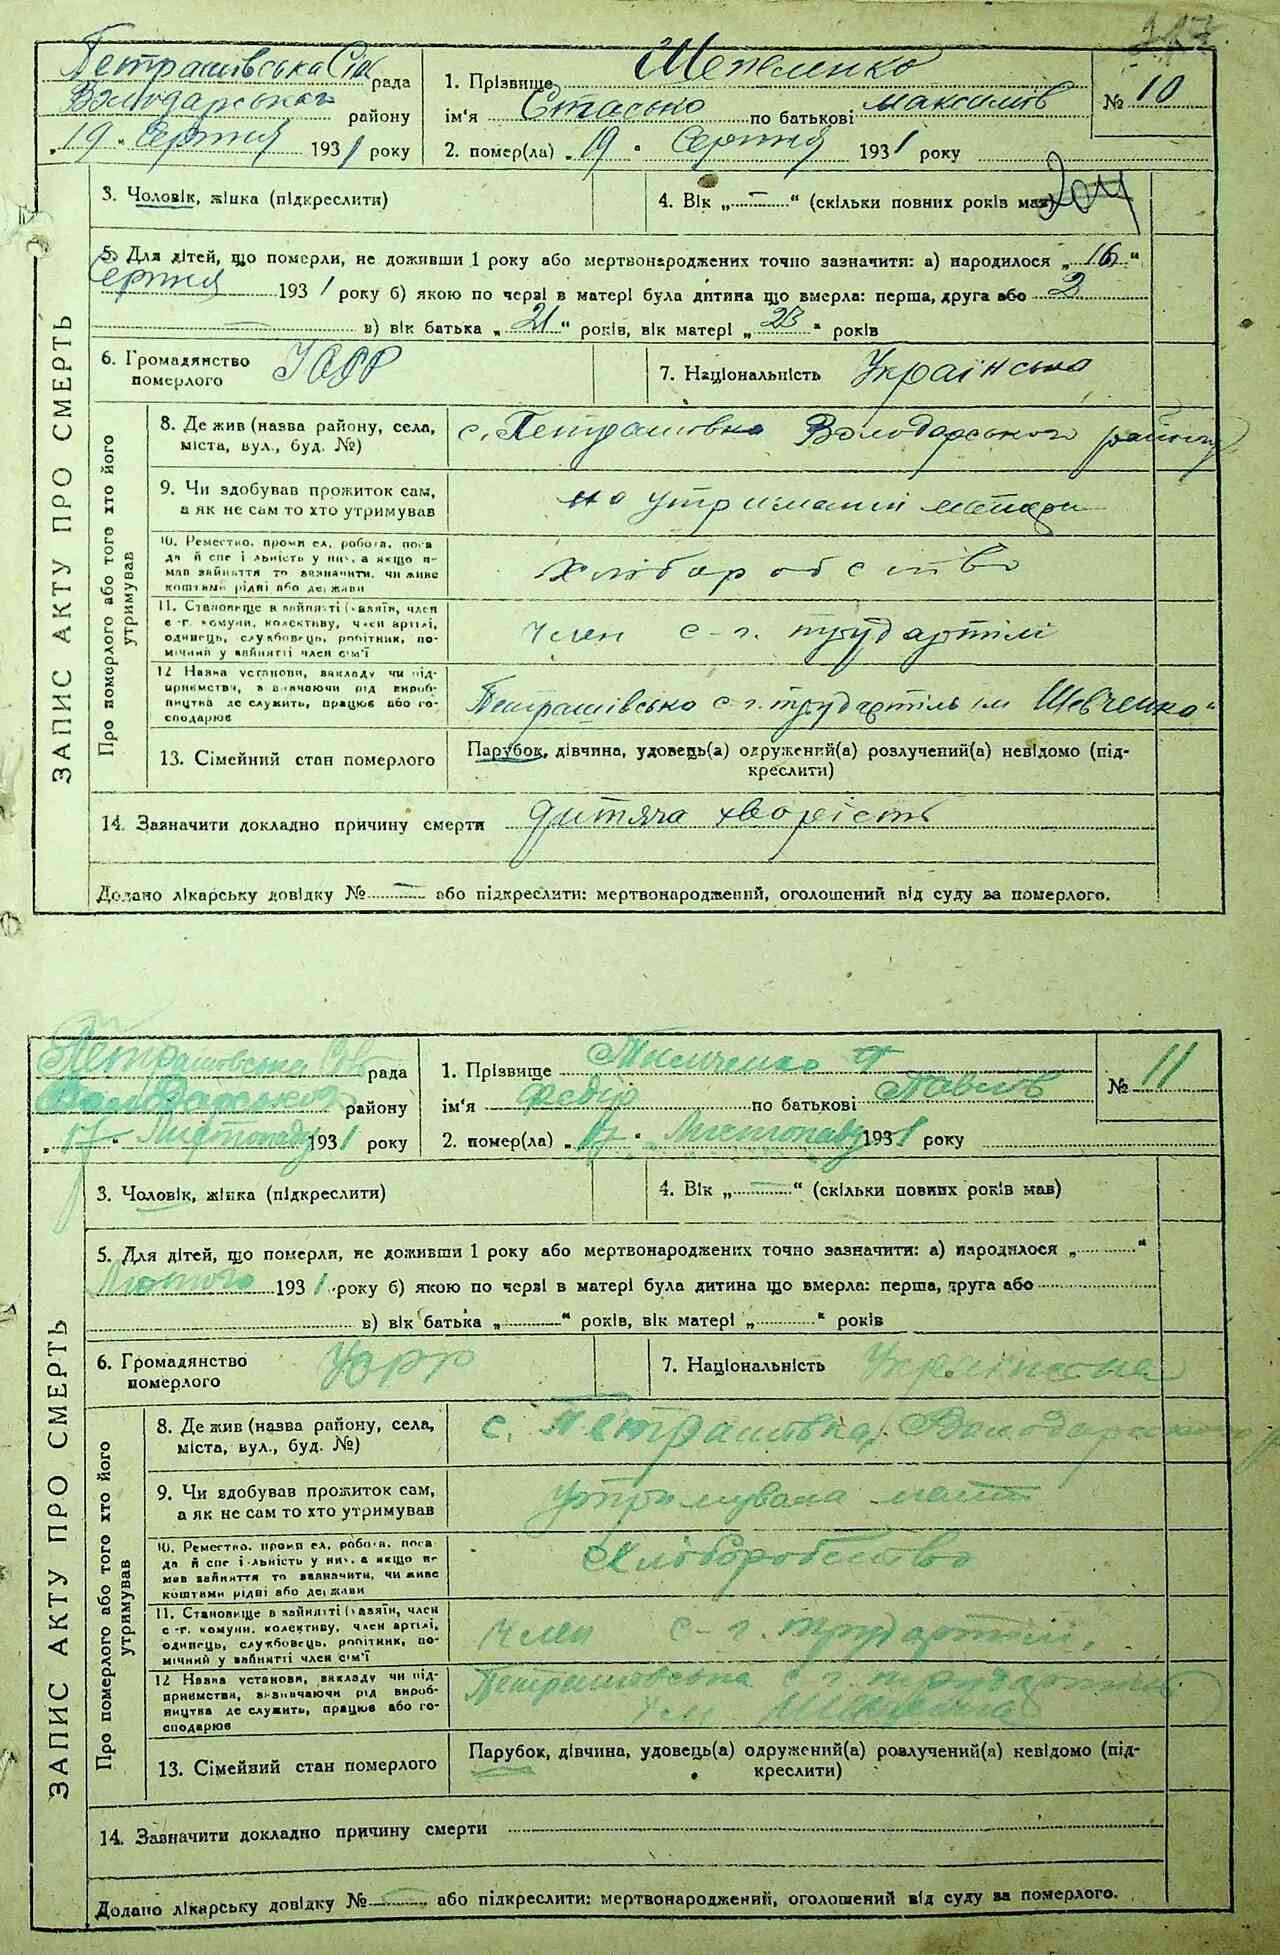 Петрашівська Сіл рада
Володарського району
„19" серпня 1931 року
1. Прізвище
ім'я Стасько по батькові Максимів
2. помер(ла) „19" Серпня 1931 року
№ 10
ЗАПИС АКТУ ПРО СМЕРТЬ
3. Чоловік, жінка (підкреслити)
4. Вік „—" (скільки повних років мав)
5. Для дітей, що померли, не доживши 1 року або мертвонароджених точно зазначити: а) народилося „16"
Серпня 1931 року б) якою по черзі в матері була дитина що вмерла: перша, друга або 2
в) вік батька „21" років, вік матері „23" років
6. Громадянство УСРР
померлого
7. Національність Українська
Про померлого або того хто його утримував
8. Де жив (назва району, села,
міста, вул., буд. №)
с. Петрашовка Володарського району
9. Чи здобував прожиток сам,
а як не сам то хто утримував
на утриманні матери
10. Ремество, промисел, робота, поса
да й спеціальність у них, а якщо не
мав зайняття то зазначити, чи живе
коштами рідні або держави
Хліборобство
11. Становище в зайнятті (хазяїн, член
с-г. комуни, колективу, член артілі,
одинець, службовець, робітник, по-
мічний у зайнятті член сім'ї
член с-г. трудартілі
12 Назва установи, закладу чи під-
приємства, зазначаючи рід вироб-
ництва де служить, працює або го-
сподарює
Петрашівсько с г. трудартіль ім Шевченка"
13. Сімейний стан померлого
Парубок, дівчина, удовець(а) одружений(а) розлучений(а) невідомо (під-
креслити)
14. Зазначити докладно причину смерти дитяча хворість
Додано лікарську довідку №— або підкреслити: мертвонароджений, оголошений від суду за померлого.
Петрашовська рада
Володарського району
„17" Листопаду 1931 року
1. Прізвище
ім'я Федір по батькові Павлів
2. помер(ла) „17" Листопаду 1931 року
№ 11
ЗАПИС АКТУ ПРО СМЕРТЬ
3. Чоловік, жінка (підкреслити)
4. Вік „—" (скільки повних років мав)
5. Для дітей, що померли, не доживши 1 року або мертвонароджених точно зазначити: а) народилося „ "
Лютого 1931 року б) якою по черзі в матері була дитина що вмерла: перша, друга або
в) вік батька „ " років, вік матері „ " років
6. Громадянство УСРР
померлого
7. Національність Українська
Про померлого або того хто його утримував
8. Де жив (назва району, села,
міста, вул., буд. №)
с. Петрашовка, Володарського р
9. Чи здобував прожиток сам,
а як не сам то хто утримував
утримувала мати
10. Ремество, промисел, робота, поса
да й спеціальність у них, а якщо не
мав зайняття то зазначити, чи живе
коштами рідні або держави
Хліборобство
11. Становище в зайнятті (хазяїн, член
с-г. комуни, колективу, член артілі,
одинець, службовець, робітник, по-
мічний у зайнятті член сім'ї
член с-г. трудартілі,
12 Назва установи, закладу чи під-
приємства, зазначаючи рід вироб-
ництва де служить, працює або го-
сподарює
Петрашовська с г. трудартіль
ім
13. Сімейний стан померлого
Парубок, дівчина, удовець(а) одружений(а) розлучений(а) невідомо (під-
креслити)
14. Зазначити докладно причину смерти
Додано лікарську довідку №— або підкреслити: мертвонароджений, оголошений від суду за померлого.